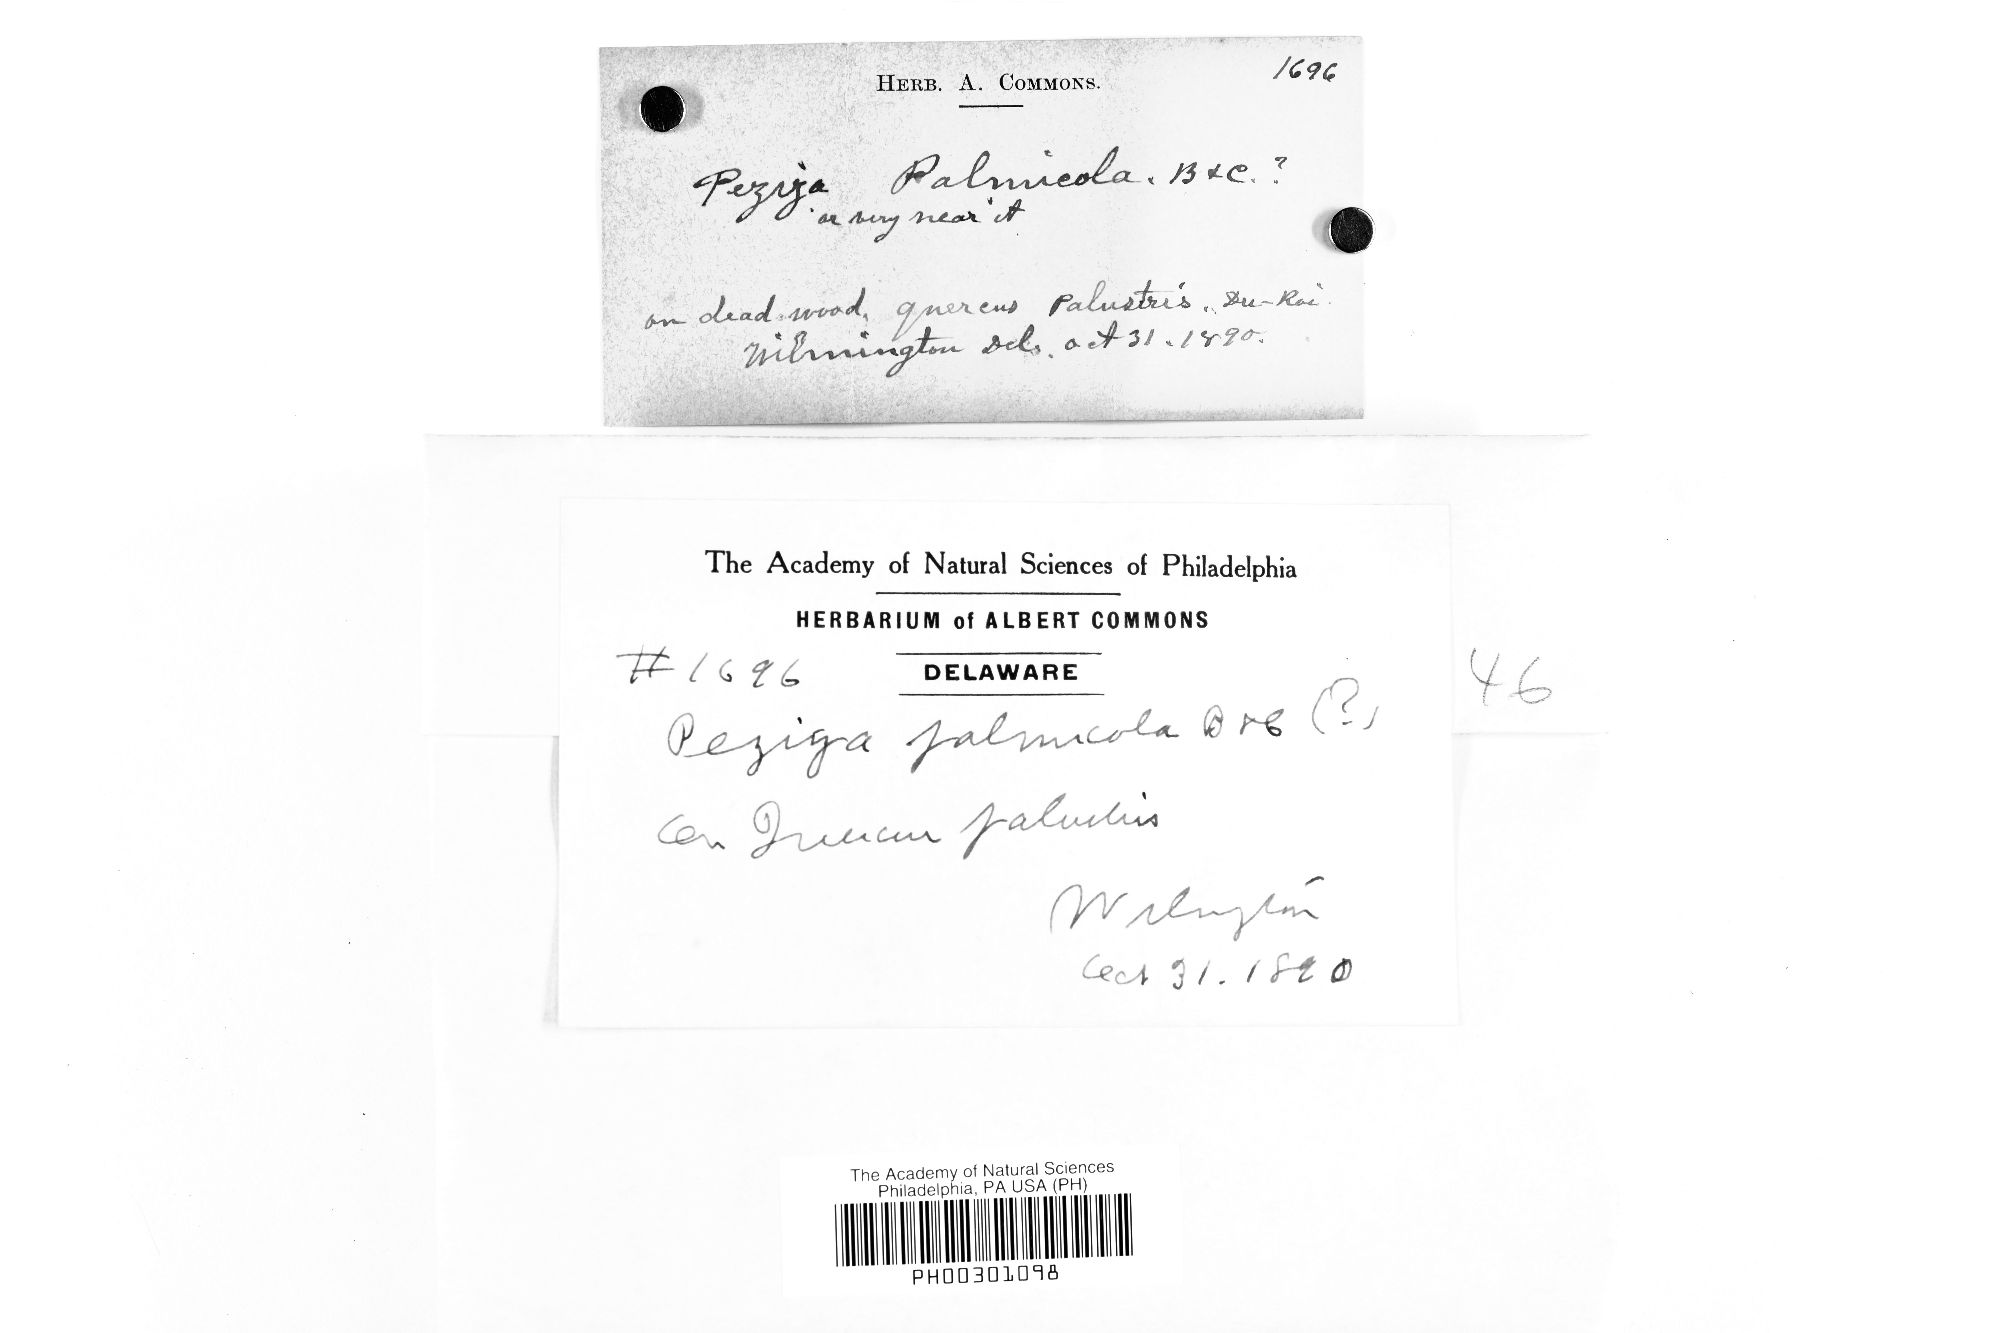 HERB. A. COMMONS.
1696
Peziza Palmicola. B & C. ?
or very near it
on dead wood, quercus Palustris. Du-Roi
Wilmington Del. oct 31. 1890.
The Academy of Natural Sciences of Philadelphia
HERBARIUM of ALBERT COMMONS
#1696
DELAWARE
46
Peziza palmicola B & C (?)
on Quercus palustris
Wilmington
Oct 31. 1890
The Academy of Natural Sciences
Philadelphia, PA USA (PH)
PH00301098